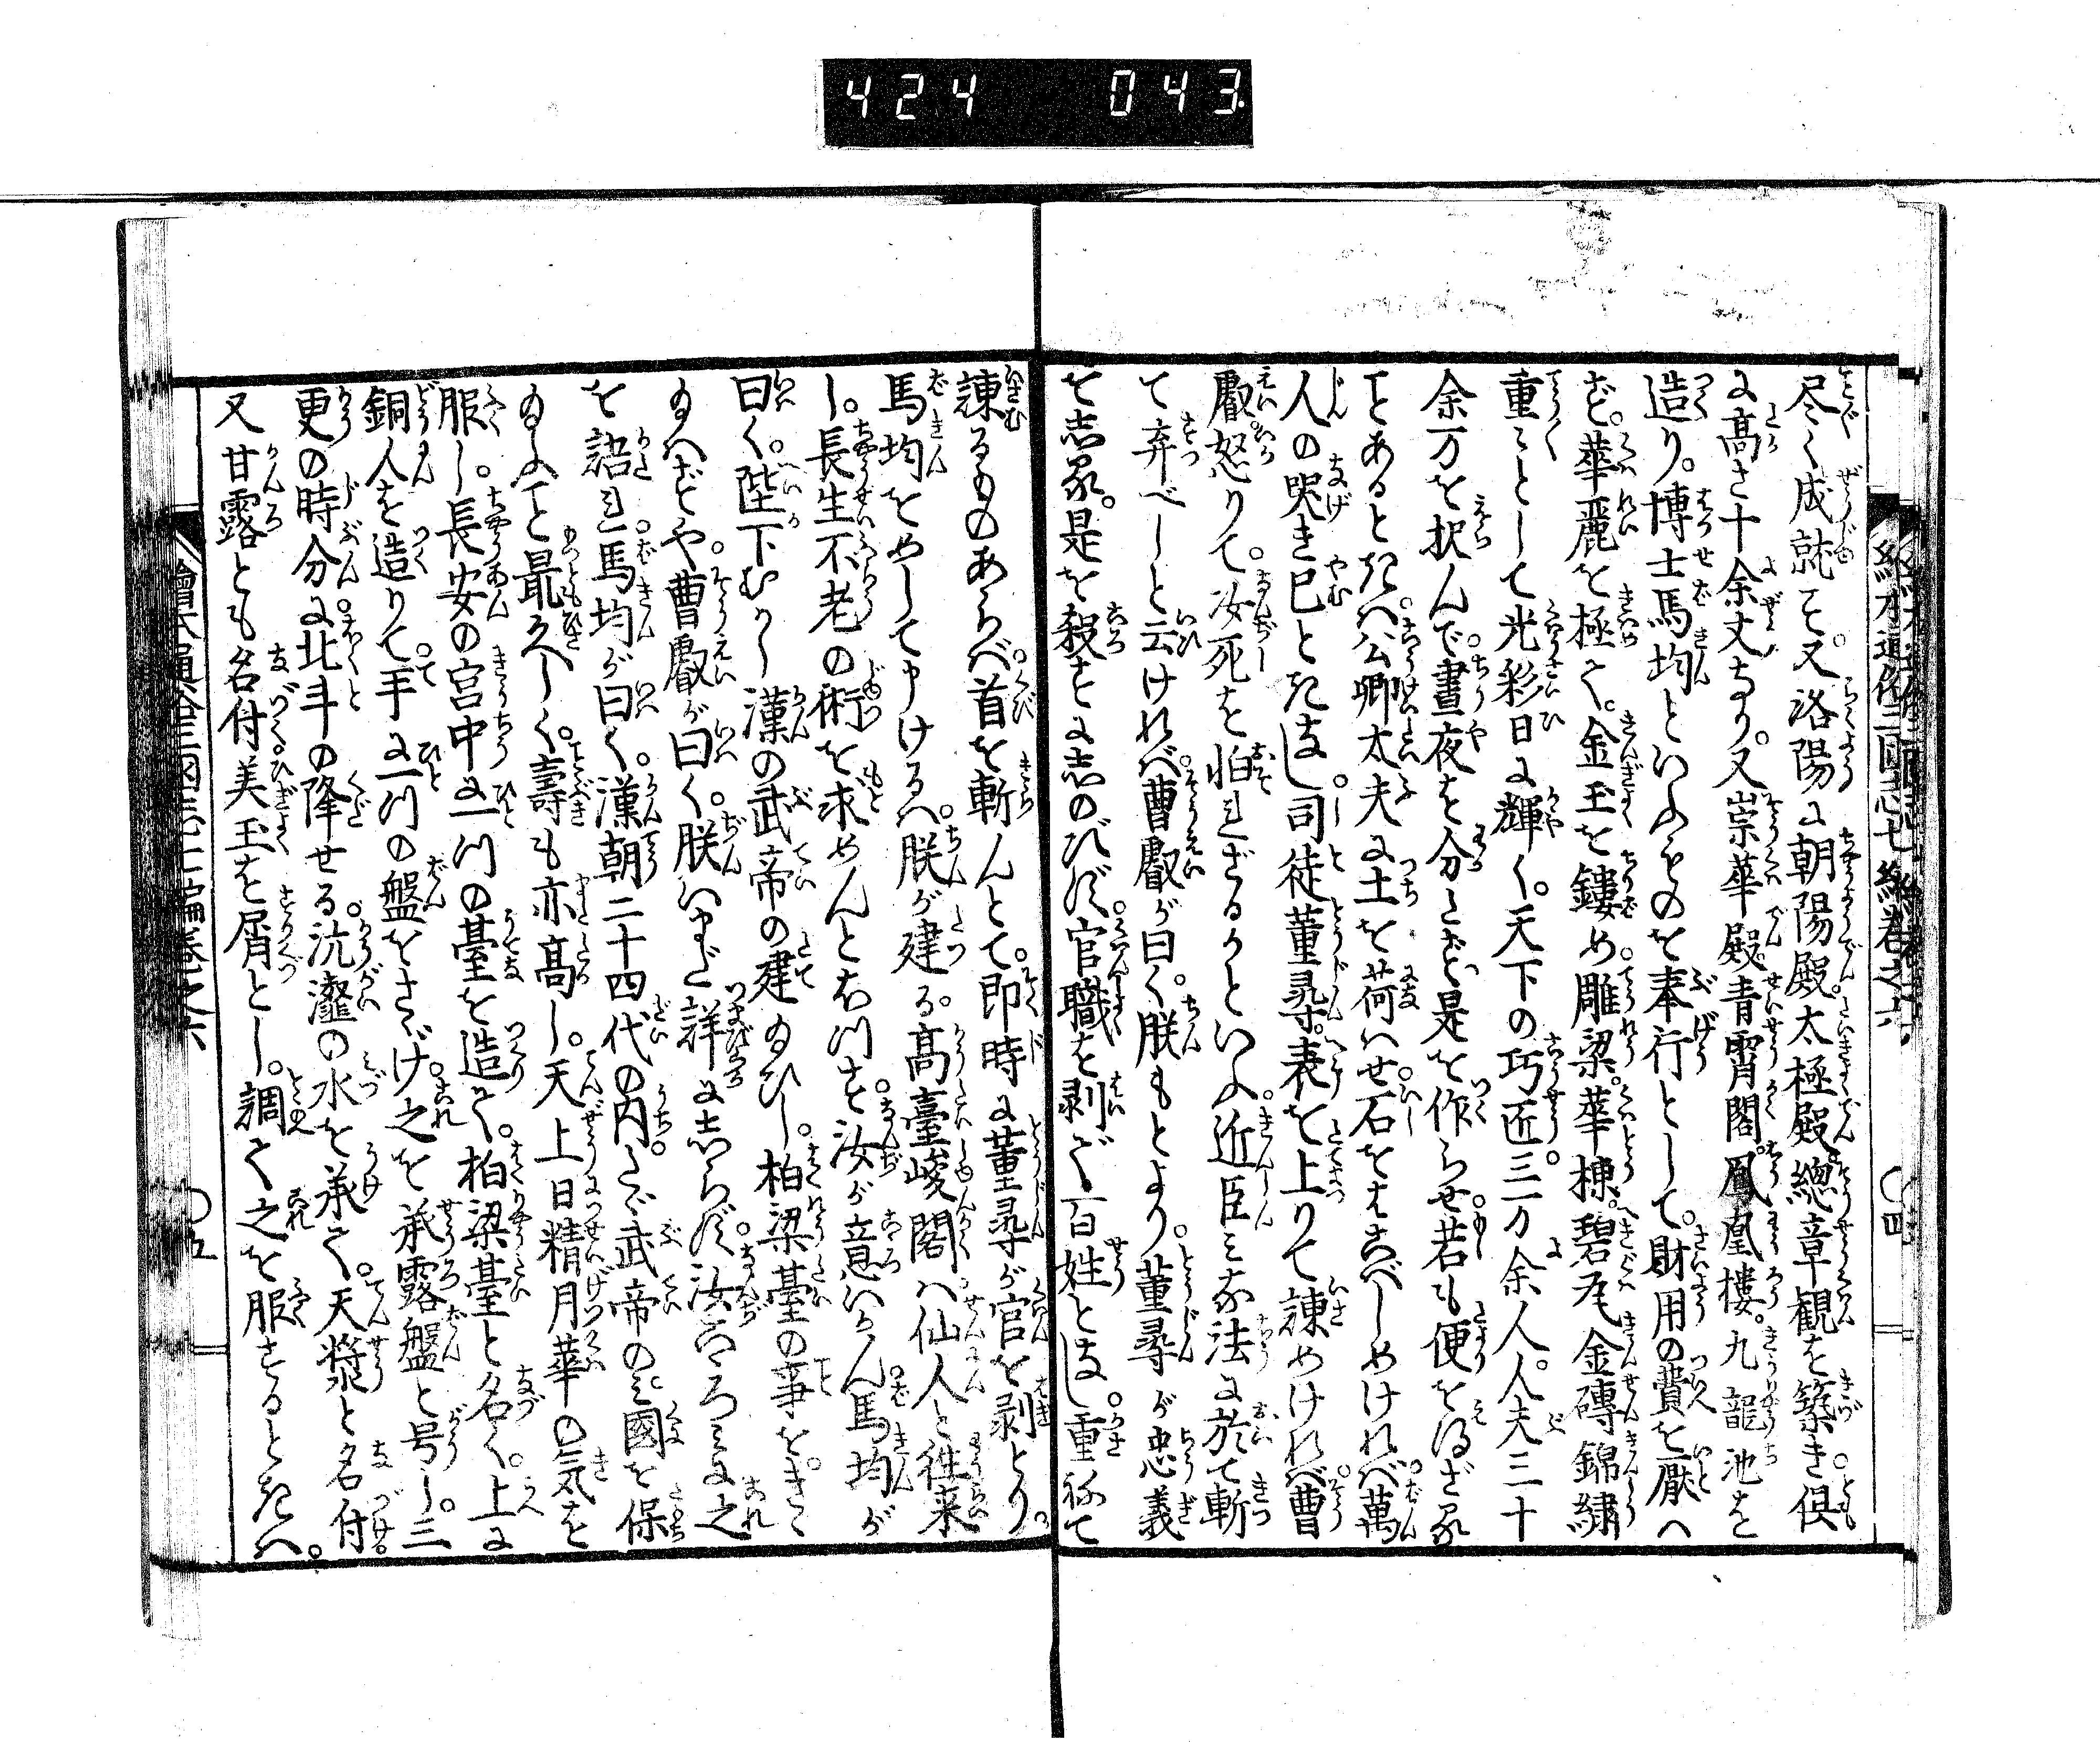 424 043
尽く成就す。又洛陽に朝陽殿。太極殿。總章観を築き。倶
に高さ十余丈なり。又崇華殿。青霄閣。鳳凰樓。九龍池を
造り。博士馬均といふものを奉行として。財用の費を厭は
ず。華麗を極て。金玉を鏤め。雕梁。華棟。碧瓦。金磚錦繍
重ゝとして光彩日に輝く。天下の巧匠三万余人。人夫三十
余万を択んで。晝夜を分たず是を作らせ。若も便を得ざる
ことあるときは。公卿太夫に土を荷はせ。石をはこばしめければ。萬
人の哭き已ときなし。司徒董尋。表を上りて諫めければ。曹
叡。怒りて。汝死を怕れざるかといふ。近臣みな法に於て斬
て弃べしと云ければ。曹叡が曰く。朕もとより。董尋が忠義
を志る。是を殺すに志のびず。官職を剥で百姓となし。重ねて
諫るものあらば。首を斬んとて。即時に董尋が官を剥とり。
馬均をめして申けるは。朕が建る。高臺峻閣は。仙人と往来
し。長生不老の術を求めんとおもふ。汝が意はいかん。馬均が
曰く。陛下むかし漢の武帝の建ゐひし。柏梁臺の事をきゝ
ゐはずや。曹叡が曰く。朕いまだ詳に志らず。汝こゝろみに之
を語れ。馬均が曰く。漢朝二十四代の内。たゞ武帝のみ國を保
ゐふこと最久しく。壽も亦高し。天上日精月華の気を
服し。長安の宮中に一つの臺を造て。柏梁臺と名く。上に
銅人を造りて。手に一つの盤をさゝげ。之を承露盤と号し。三
更の時分に。北斗の降せる。沆瀣の水を承て。天漿と名付。
又甘露とも名付。美玉を屑とし。調て之を服するときは。
繪本通俗三國志七編巻之六 〇四
繪本通俗三國志七編巻之六 〇五